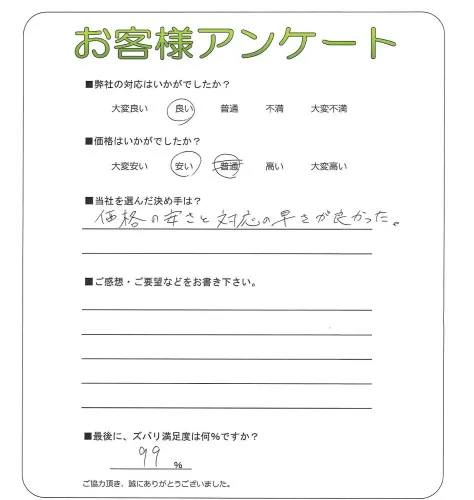 お客様アンケート
■弊社の対応はいかがでしたか？
大変良い 良い 普通 不満 大変不満
■価格はいかがでしたか？
大変安い 安い 普通 高い 大変高い
■当社を選んだ決め手は？
価格の安さと対応の早さが良かった。
■ご感想・ご要望などをお書き下さい。
■最後に、ズバリ満足度は何％ですか？
99 ％
ご協力頂き、誠にありがとうございました。